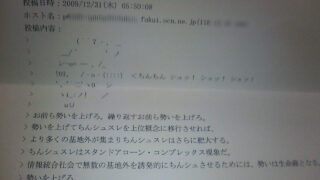 投稿日時：2009/12/31(木) 05:50:08
ホスト名：p
fukui.ocn.ne.jp
投稿内容：
＜ちんちん シュッ！ シュッ！ シュッ！
> お前ら勢いを上げろ。繰り返すお前ら勢いを上げろ。
> 勢いを上げてちんシュスレを上位概念に移行させれば、
> より多くの基地外が集まりちんシュスレはさらに肥大する。
> ちんシュスレはスタンドアローン・コンプレックス現象だ。
> 情報統合社会で無数の基地外を誘発的にちんシュさせるためには、勢いは生命線となる。
> 勢いを上げろ